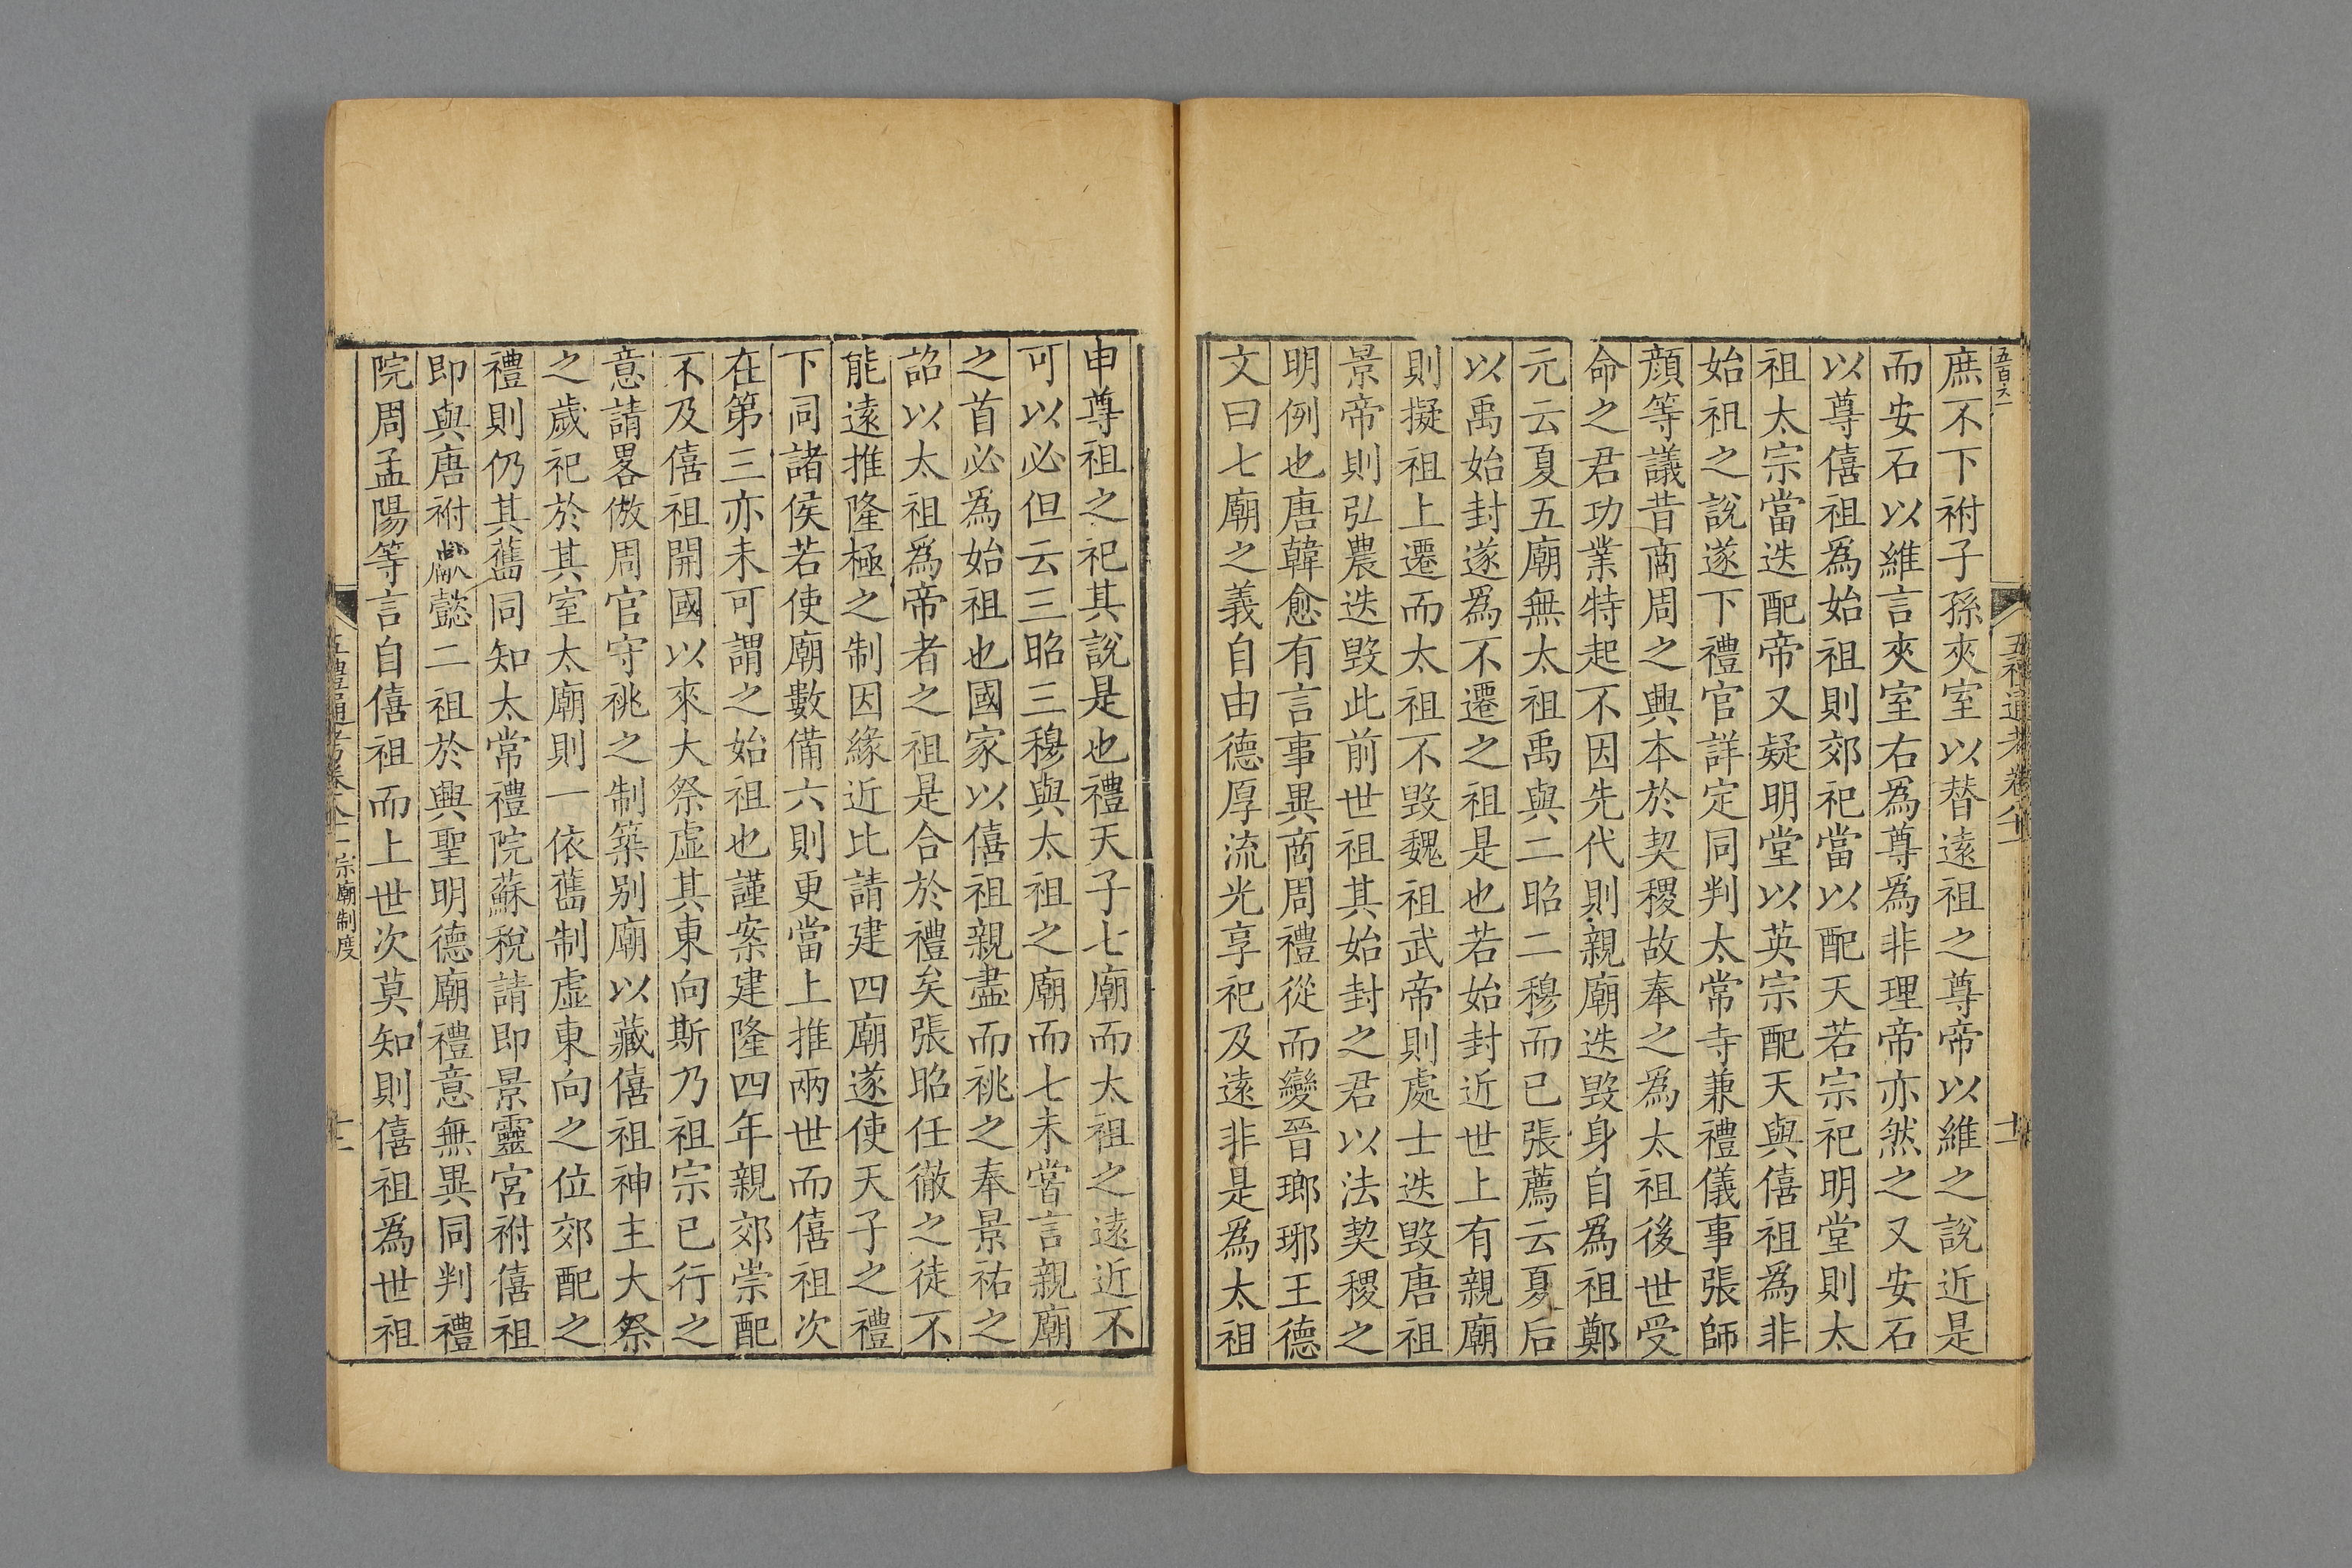 庶不下祔子孫夾室以替遠祖之尊帝以維之說近是
而安石以維言夾室右爲尊爲非理帝亦然之又安石
以尊僖祖爲始祖則郊祀當以配天若宗祀明堂則太
祖太宗當迭配帝又疑明堂以英宗配天與僖祖爲非
始祖之說遂下禮官詳定同判太常寺兼禮儀事張師
顔等議昔商周之興本於契稷故奉之爲太祖後世受
命之君功業特起不因先代則親廟迭毀身自爲祖鄭
元云夏五廟無太祖禹與二昭二穆而已張薦云夏后
以禹始封遂爲不遷之祖是也若始封近世上有親廟
則擬祖上遷而太祖不毀魏祖武帝則處士迭毀唐祖
景帝則弘農迭毀此前世祖其始封之君以法契稷之
明例也唐韓愈有言事異商周禮從而變晉瑯琊王德
文曰七廟之義自由德厚流光享祀及遠非是爲太祖
申尊祖之祀其說是也禮天子七廟而太祖之遠近不
可以必但云三昭三穆與太祖之廟而七未嘗言親廟
之首必爲始祖也國家以僖祖親盡而祧之奉景祐之
詔以太祖爲帝者之祖是合於禮矣張昭任徹之徒不
能遠推隆極之制因緣近比請建四廟遂使天子之禮
下同諸侯若使廟數備六則更當上推兩世而僖祖次
在第三亦未可謂之始祖也謹案建隆四年親郊崇配
不及僖祖開國以來大祭虛其東向斯乃祖宗已行之
意請畧倣周官守祧之制築別廟以藏僖祖神主大祭
之歲祀於其室太廟則一依舊制虛東向之位郊配之
禮則仍其舊同知太常禮院蘇稅請即景靈宮祔僖祖
即與唐祔獻懿二祖於興聖明德廟禮意無異同判禮
院周孟陽等言自僖祖而上世次莫知則僖祖爲世祖
五禮通考卷八十二 宗廟制度
十二